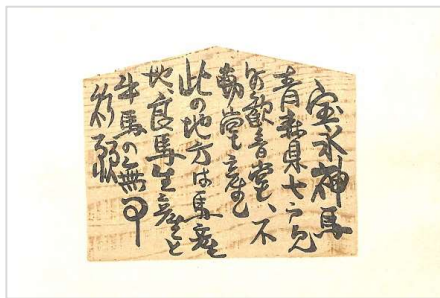 宝永神馬
青森県七戸見
町観音堂、不
動堂
此の地方は馬産
地、良馬生産と
牛馬の無事
祈願